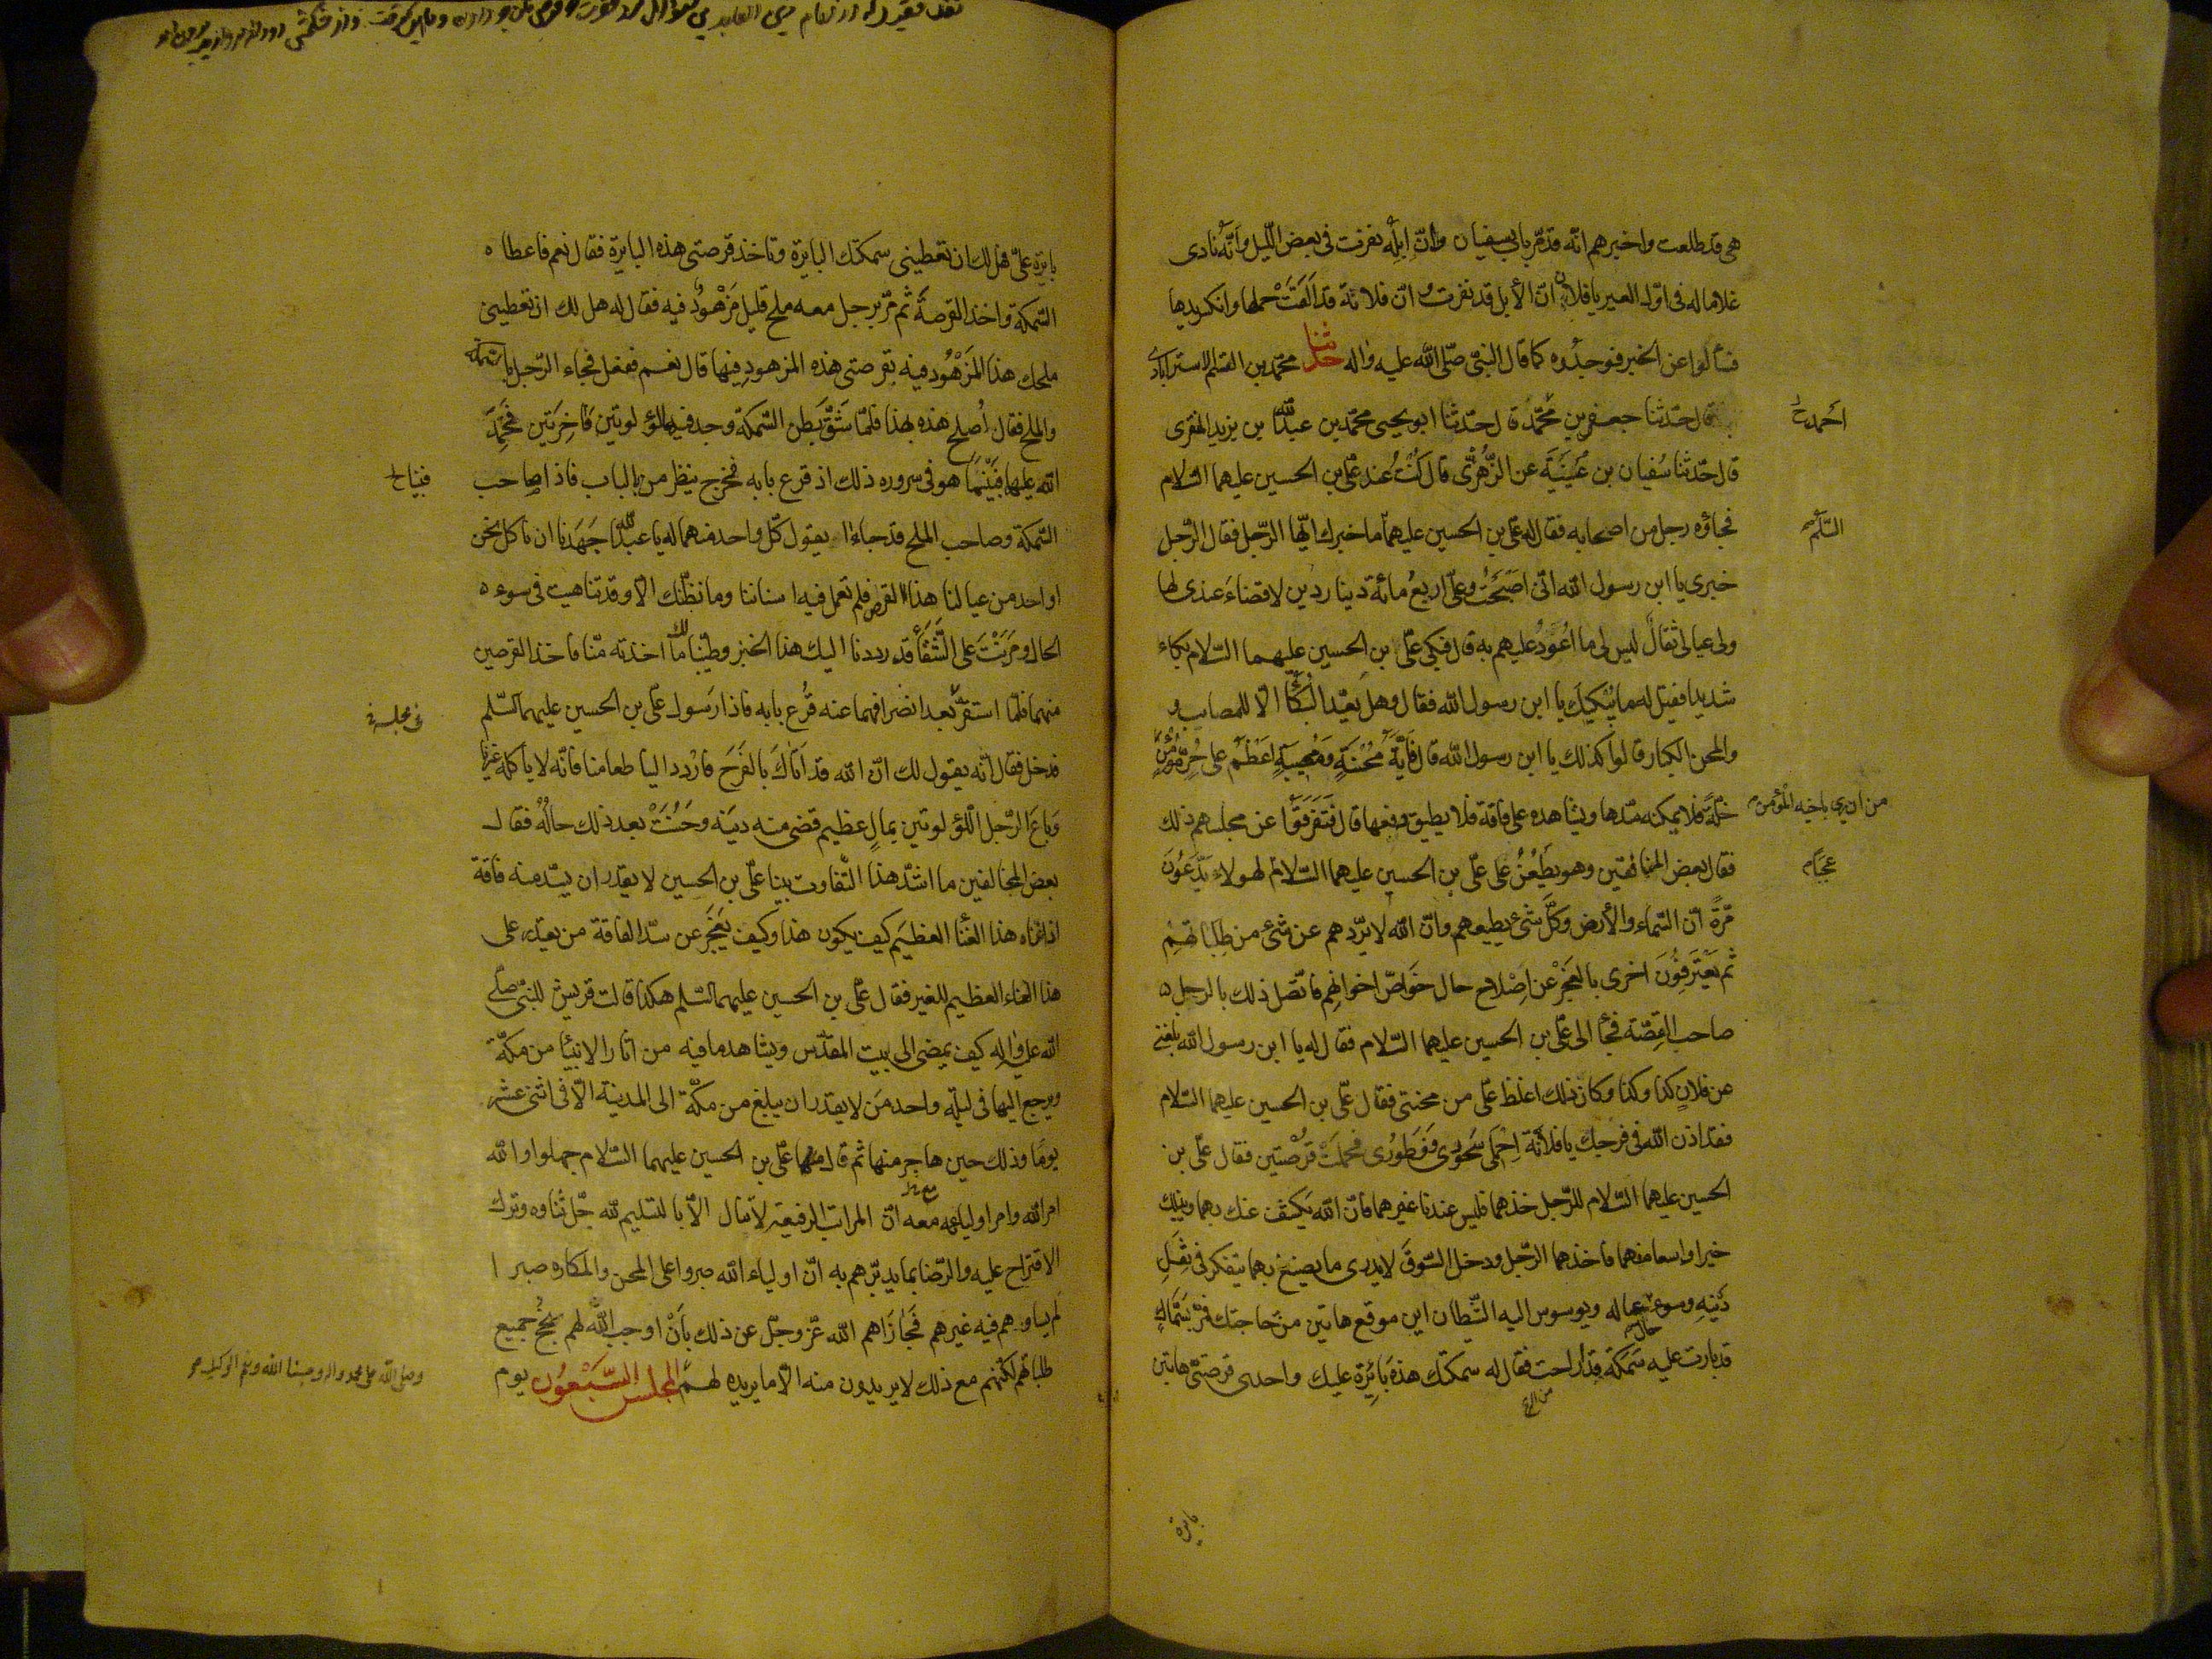 هى قد طلعت واخبرهم انّه قد مرّ بابى سفيان وانّ ابله نفرت فى بعض اللّيل وانّه نادى
غلاما له فى اوّل العير يا فلان انّ الأبل قد نفرت وانّ فلانة قد القت حملها وانكسر يدها
فسألوا عن الخبر فوجدوه كما قال النبىّ صلّى الله عليه واله حدثنا محمّد بن القسم الاسترابادى
قال حدّثنا جعفر بن محمّد قال حدّثنا ابو يحيى محمّد بن عبد الله بن يزيد المقرى
احمد خ
قال حدّثنا سُفيان بن عُيَيْنَة عن الزُّهرىّ قال كنتُ عند علىّ بن الحسين عليهما السّلام
فجاؤه رجل من اصحابه فقال له علىّ بن الحسين عليهما ما خبرك ايّها الرّجل فقال الرّجل
السّلم
خبرى يا ابن رسول الله انّى اصبحتُ وعلىّ اربع مائة دينار دين لا قضاء عندى لها
ولى عيال ثقال ليس لى ما اعُودُ عليهم به قال فبكى علىّ بن الحسين عليهما السّلام بكاء
شديدا فقيل له ما يُبْكيك يا ابن رسول الله فقال وهل يعدّ البكاء الّا للمصايب و
والمحن الكبار قالوا كذلك يا ابن رسول الله قال فأيّة محنة ومُصيبة اعظم على حُرّ مُؤمن
من ان يرى باخيه المؤمن
خلّة فلا يمكنه سدّها ويشاهده على فاقة فلا يطيق رفعها قال فتفرّقوا عن مجلسهم ذلك
فقال بعض المخالفين وهو يطعُنُ على علىّ بن الحسين عليهما السّلام لهولاء يدّعُون
عجبًا
مرّةً انّ السّماء والأرض وكلّ شئ يطيعهم وانّ الله لا يردّهم عن شئ من طلباتهم
ثم يعترفون اخرى بالعجز عن اصلاح حال خواصّ اخوانهم فاتّصل ذلك بالرجل
صاحب القصّة فجأ الى علىّ بن الحسين عليهما السّلام فقال له يا ابن رسول الله بلغنى
عن فلان كذا وكذا وكان ذلك اغلظ علىّ من محنتى فقال علىّ بن الحسين عليهما السّلام
فقد اذن الله فى فرجك يا فلانة احملى سحورى وفطورى فحملت قرصتين فقال علىّ بن
الحسين عليهما السّلام للرّجل خذهما فليس عندنا غيرهما فانّ الله يكشف عنك بهما وينيلك
خيرا واسعا منهما فاخذهما الرّجل ودخل السّوق لا يدرى ما يصنع بهما يتفكر فى ثقل
دَينه وسوء حال عياله ويوسوس اليه الشّيطان اين موقع هاتين من حاجتك فمرّ بسمّاك
قد بارت عليه سمكة قد اراحت فقال له سمكتك هذه بائرة عليك واحدى قرصتىّ هاتين
بايرة
بايرة علىّ هل لك ان تعطينى سمكتك البايرة وتاخذ قرصتى هذه البايرة فقال نعم فاعطاه
السّمكة واخذ القرصة ثم مرّ برجل معه ملح قليل مزهُود فيه فقال له هل لك ان تعطينى
ملحك هذا المزهُود فيه بقرصتى هذه المزهود فيها قال نعم ففعل فجاء الرّجل بالسّمكة
والملح فقال اُصلح هذه بهذا فلمّا شقّ بطن السّمكة وجد فيه لؤلوتين فاخرتين فحمد
الله عليهما فبينما هو فى سروره ذلك اذ قرع بابه فخرج ينظر من بالباب فاذا صاحب
فبينا خ
السّمكة وصاحب الملح قد جاءا يقول كلّ واحد منهما له يا عبد الله جهدنا ان ناكل نحن
او احد من عيالنا هذا القرص فلم تعمل فيه اسناننا وما نظنّك الّا وقد تناهيت فى سوء
الحال ومرنت على الشّقاء قد رددنا اليك هذا الخبز وطيّبنا لك ما اخذته منّا فاخذ القرصين
منهما فلمّا استقرّ بعد انصرافهما عنه قُرع بابه فاذا رسول علىّ بن الحسين عليهما السّلم
فى مجلسه خ
فدخل فقال انّه يقول لك انّ الله قد اتاك بالفرج فاردد الينا طعامنا فانّه لا ياكله غيرنا
وباع الرّجل اللّؤلوتين بمال عظيم قضى منه دينه وحسُنت بعد ذلك حاله فقال
بعض المخالفين ما اشدّ هذا التّفاوت بينا علىّ بن الحسين لا يقدر ان يسدّ منه فاقة
اذ اغناه هذا الغنأ العظيم كيف يكون هذا وكيف يعجز عن سدّ الفاقة من يقدر على
هذا الغناء العظيم للغير فقال علىّ بن الحسين عليهما السّلم هكذا قالت قريش للنبىّ صلّى
الله عليه واله كيف يمضى الى بيت المقدّس ويشاهد ما فيه من آثار الانبيٓا من مكّة
ويرجع اليها فى ليلة واحدة من لا يقدر ان يبلغ من مكّة الى المدينة الّا فى اثنى عشر
يومًا وذلك حين هاجر منها ثم قال علىّ بن الحسين عليهما السّلام جهلوا والله
امر الله وامر اوليائه معه انّ المراتب الرفيعة لا تنال الّا بالتسليم لله جلّ ثناوه وترك
الاقتراح عليه والرّضا بما يدبّرهم به انّ اولياء الله صبروا على المحن والمكاره صبرا
لم يساوهم فيه غيرهم فجازاهم الله عزّ وجلّ عن ذلك بان اوجب الله لهم نجح جميع
طلباتهم لكنّهم مع ذلك لا يريدون منه الّا ما يريده لهم المجلس السّبعون يوم
وصلى الله على محمد واله وحسبنا الله ونعم الوكيل